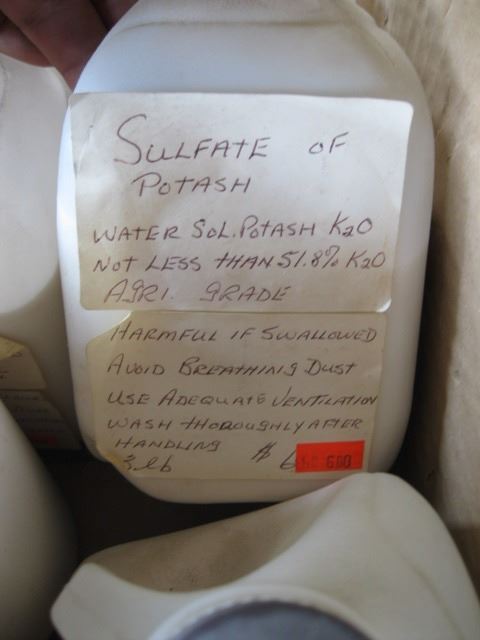 SULFATE OF
POTASH
WATER SOL. POTASH K2O
NOT LESS THAN 51.8% K2O
AGRI. GRADE
HARMFUL IF SWALLOWED
AVOID BREATHING DUST
USE ADEQUATE VENTILATION
WASH THOROUGHLY AFTER
HANDLING
3 lb $ 6